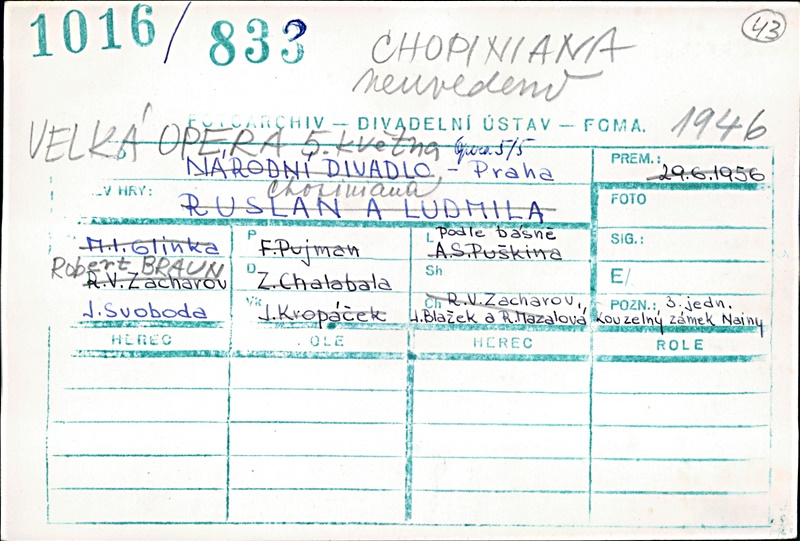 1016/ 833
CHOPINIANA
43
neuvedeno
FOTOARCHIV — DIVADELNÍ ÚSTAV — FOMA.
1946
VELKÁ OPERA 5. května
Opera 5/5
NÁRODNÍ DIVADLO - Praha
PREM.: 29.6.1956
Chopiniana
FOTO
V HRY: RUSLAN A LUDMILA
M.I. Glinka
P F. Pujman
L podle básně
A.S. Puškina
SIG.:
Robert BRAUN
R.V. Zacharov
D Z. Chalabala
Sh
E/
J. Svoboda
Vk J. Kropáček
Ch R.V. Zacharov,
J. Blažek a R. Mazalová
POZN.: 3. jedn.
Kouzelný zámek Nainy
HEREC OLE HEREC ROLE